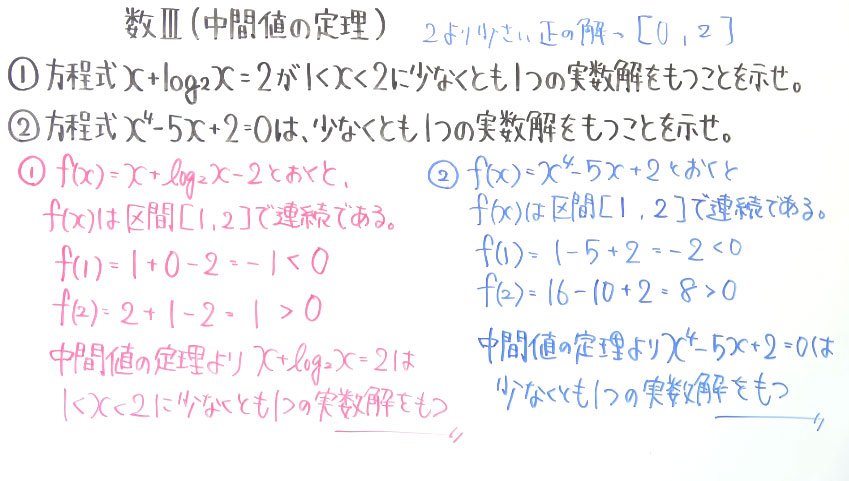 数Ⅲ(中間値の定理) 2より少さい正の解→[0,2]
① 方程式x+log₂x=2が1<x<2に少なくとも1つの実数解をもつことを示せ。
② 方程式x⁴-5x+2=0は、少なくとも1つの実数解をもつことを示せ。
① f(x)=x+log₂x-2とおくと、
f(x)は区間[1,2]で連続である。
f(1)=1+0-2=-1<0
f(2)=2+1-2=1>0
中間値の定理より x+log₂x=2は
1<x<2に少なくとも1つの実数解をもつ
② f(x)=x⁴-5x+2とおくと
f(x)は区間[1,2]で連続である。
f(1)=1-5+2=-2<0
f(2)=16-10+2=8>0
中間値の定理よりx⁴-5x+2=0は
少なくとも1つの実数解をもつ